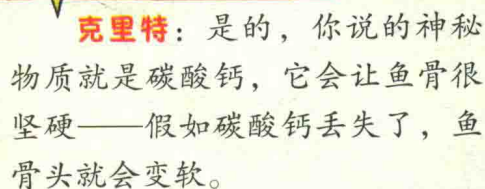 克里特：是的，你说的神秘
物质就是碳酸钙，它会让鱼骨很
坚硬——假如碳酸钙丢失了，鱼
骨头就会变软。